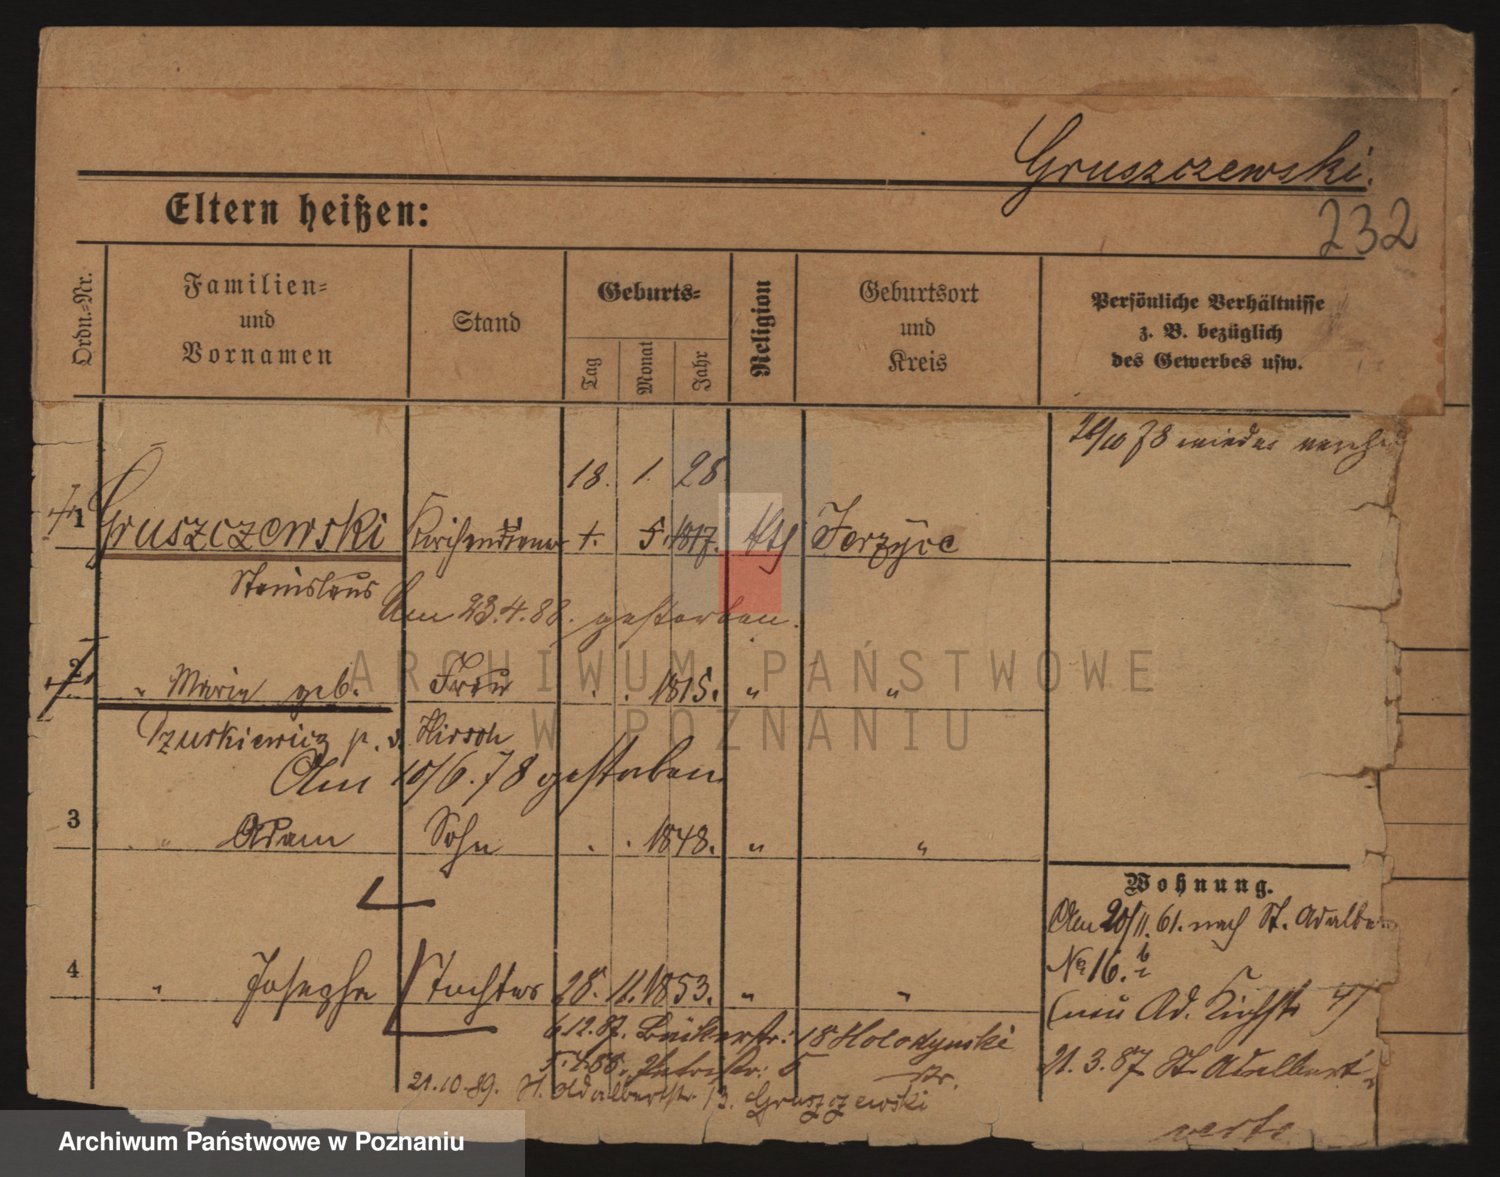 Gruszczewski.
232
Eltern heißen:
Ordn.-Nr.
Familien-
und
Vornamen
Stand
Geburts-
Tag
Monat
Jahr
Religion
Geburtsort
und
Kreis
Persönliche Verhältnisse
z. B. bezüglich
des Gewerbes usw.
26/10 78 wieder
18. 1. 28
1 Gruszczewski Kirchendiener 5. 1817. kth Jerzyce
Stanislaus
Am 23.4.88. gestorben.
2 " Maria geb. Frau . . 1815. " "
p. v. Hirsch
Am 10/6.78 gestorben
3 " Adam Sohn . . 1848. " "
4 " Josepha Tochter 28. 11. 1853. " "
Wohnung.
Am 20/11. 61. nach St. Adalbe
No 16.
(neu Ad. Kirchstr
21.3.87. St. Adalbert
6.12.87. Bäckerstr: 18 Holodynski
5.4.88. Petristr: 5
21.10.89. St. Adalbertstr. 13. Gruszczewski
verte
ARCHIWUM PAŃSTWOWE
W POZNANIU
Archiwum Państwowe w Poznaniu